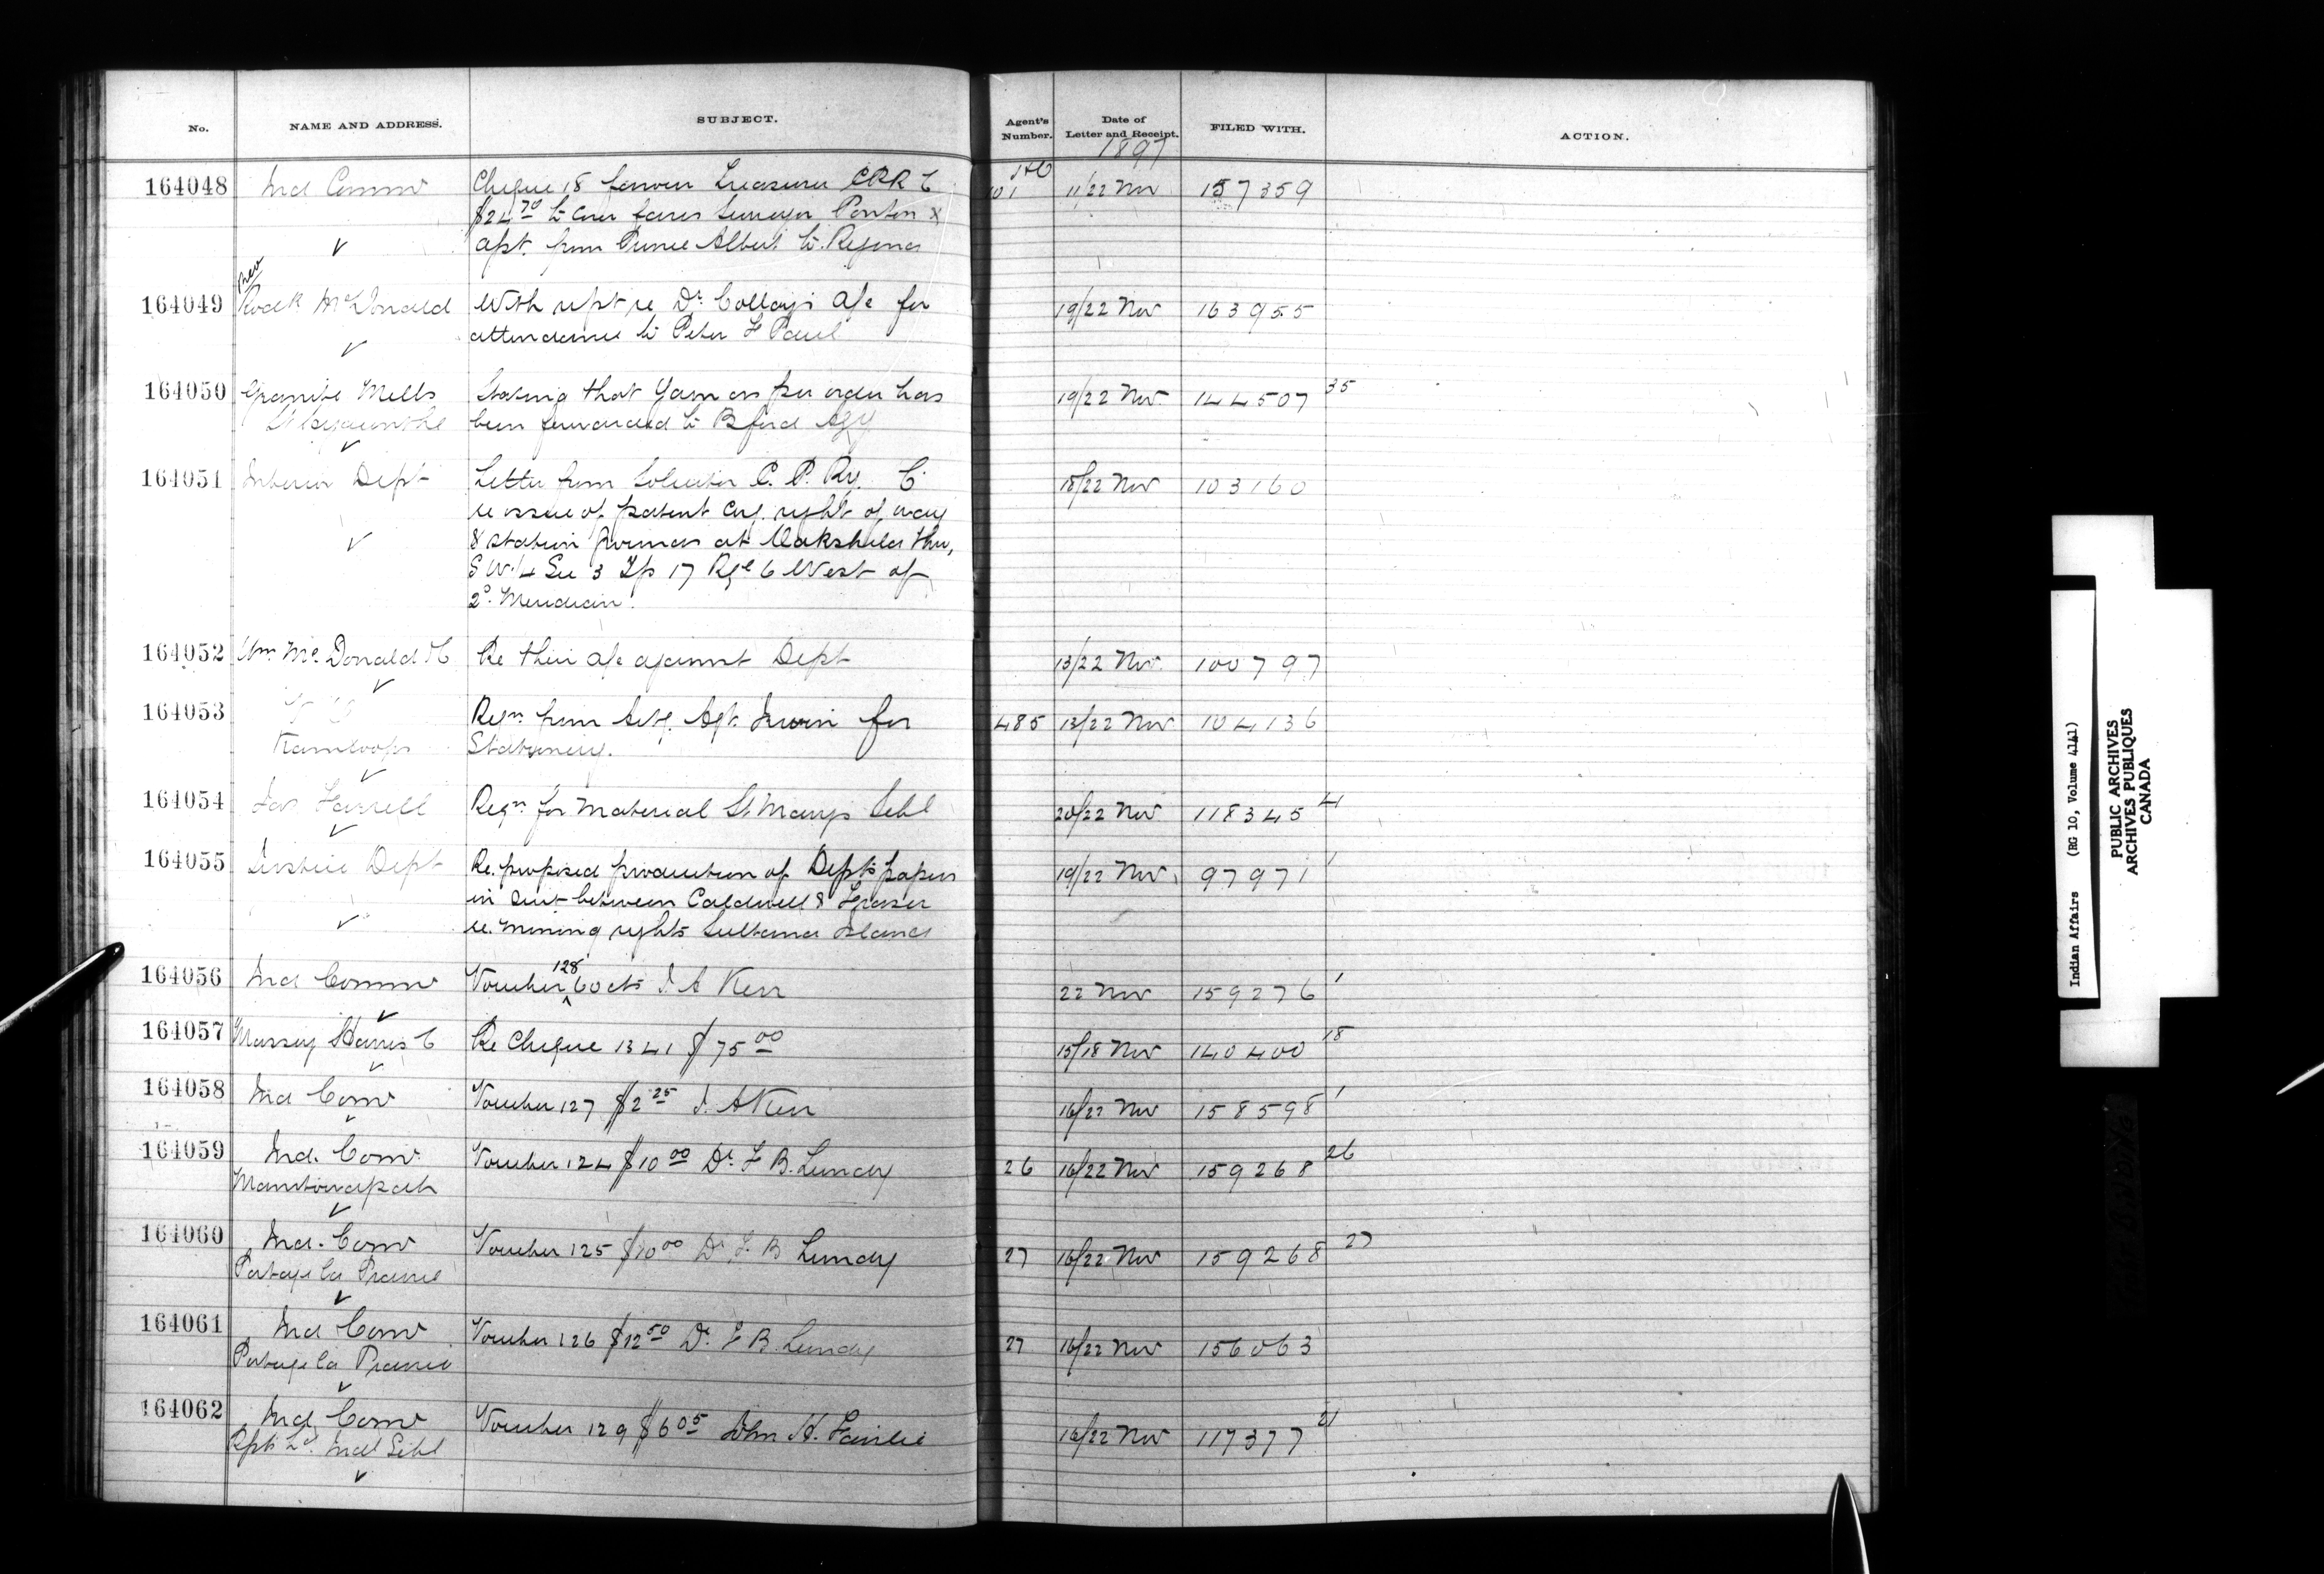 No. NAME AND ADDRESS. SUBJECT. Agent's Number. Date of Letter and Receipt. FILED WITH. ACTION.
1897
164048 Ind Commr Cheque 18 favour Treasurer 101 11/22 Nov 157359
$24 70 to cover fares Surveyor Ponton &
from Prince Albert to Regina
164049 Rev Rodk McDonald With rept re Dr a/c for 19/22 Nov 163955
attendance to Peter Paul
164050 Granite Mills Stating that Yarn as per order has 19/22 Nov 144507 35
St Hyacinthe been forwarded to Bford Agy
164051 Interior Dept Letter from Solicitor C. P. Ry. C 18/22 Nov 103160
re issue of patent right of way
& station at Oakshela thro,
S W 1/4 Sec 3 Tp 17 Rge 6 West of
2d. Meridian.
164052 Wm McDonald & C Re their a/c against Dept 13/22 Nov. 100797
164053 Reqn from Actg. Agt. Irwin for 485 13/22 Nov 104136
Kamloops Stationery.
164054 Jas Farrell Reqn for Material St Marys Schl 20/22 Nov 118345 4
164055 Justice Dept Re. proposed production of Depts papers 19/22 Nov 97971 1
in suit between Caldwell & Fraser
re. mining rights Sultana Island
164056 Ind Commr Voucher 128 60 cts J. A Kerr 22 Nov 159276 1
164057 Massey Harris C Re Cheque 1341 $75 00 15/18 Nov 140400 18
164058 Ind Comr Voucher 127 $2 25 J. A Kerr 16/22 Nov 158598 1
164059 Ind. Comr Voucher 124 $10 00 Dr. F B. Lundy 26 16/22 Nov 159268 26
Manitowapah
164060 Ind. Comr Voucher 125 $10 00 Dr F. B Lundy 27 16/22 Nov 159268 27
Portage la Prairie
164061 Ind Comr Voucher 126 $12 50 Dr. F B. Lundy 27 16/22 Nov 156063
Portage la Prairie
164062 Ind Comr Voucher 129 $6 05 John H. Fairlie 16/22 Nov 117377 21
Rpts Ld. Indl Schl
Indian Affairs (RG 10, Volume 4141)
PUBLIC ARCHIVES
ARCHIVES PUBLIQUES
CANADA